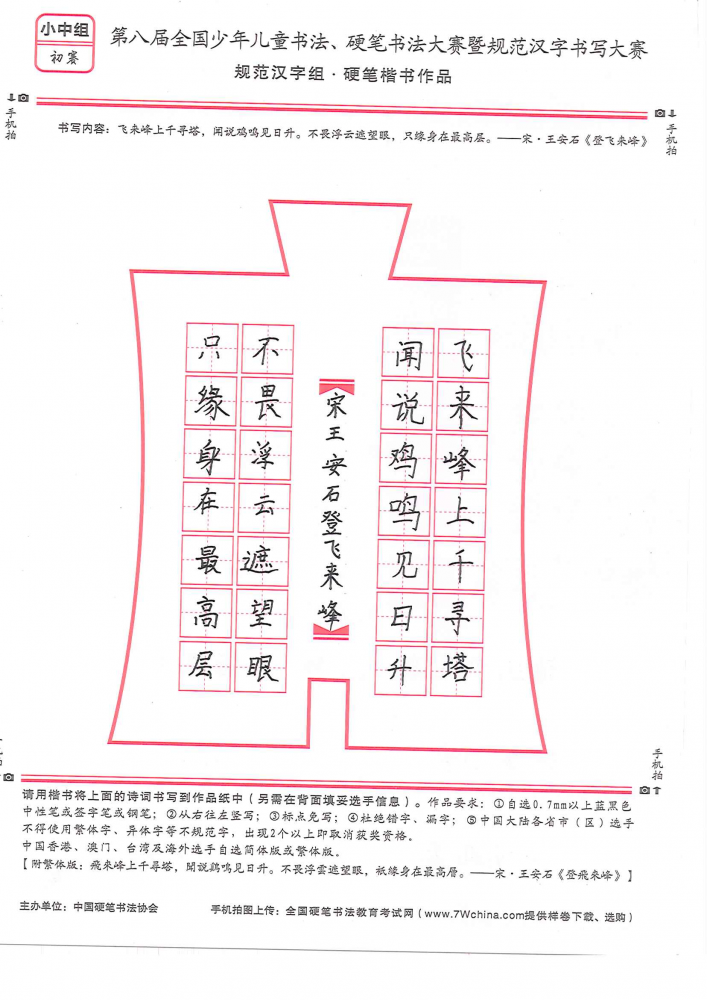 小中组
初赛
第八届全国少年儿童书法、硬笔书法大赛暨规范汉字书写大赛
规范汉字组·硬笔楷书作品
手机拍
手机拍
书写内容：飞来峰上千寻塔，闻说鸡鸣见日升。不畏浮云遮望眼，只缘身在最高层。——宋·王安石《登飞来峰》
飞来峰上千寻塔
闻说鸡鸣见日升
宋王安石登飞来峰
不畏浮云遮望眼
只缘身在最高层
手机拍
请用楷书将上面的诗词书写到作品纸中（另需在背面填妥选手信息）。作品要求：①自选0.7mm以上蓝黑色
中性笔或签字笔或钢笔；②从右往左竖写；③标点免写；④杜绝错字、漏字；⑤中国大陆各省市（区）选手
不得使用繁体字、异体字等不规范字，出现2个以上即取消获奖资格。
中国香港、澳门、台湾及海外选手自选简体版或繁体版。
【附繁体版：飛来峰上千尋塔，聞說鷄鳴見日升。不畏浮雲遮望眼，衹緣身在最高層。——宋·王安石《登飛来峰》】
主办单位：中国硬笔书法协会
手机拍图上传：全国硬笔书法教育考试网（www.7Wchina.com提供样卷下载、选购）